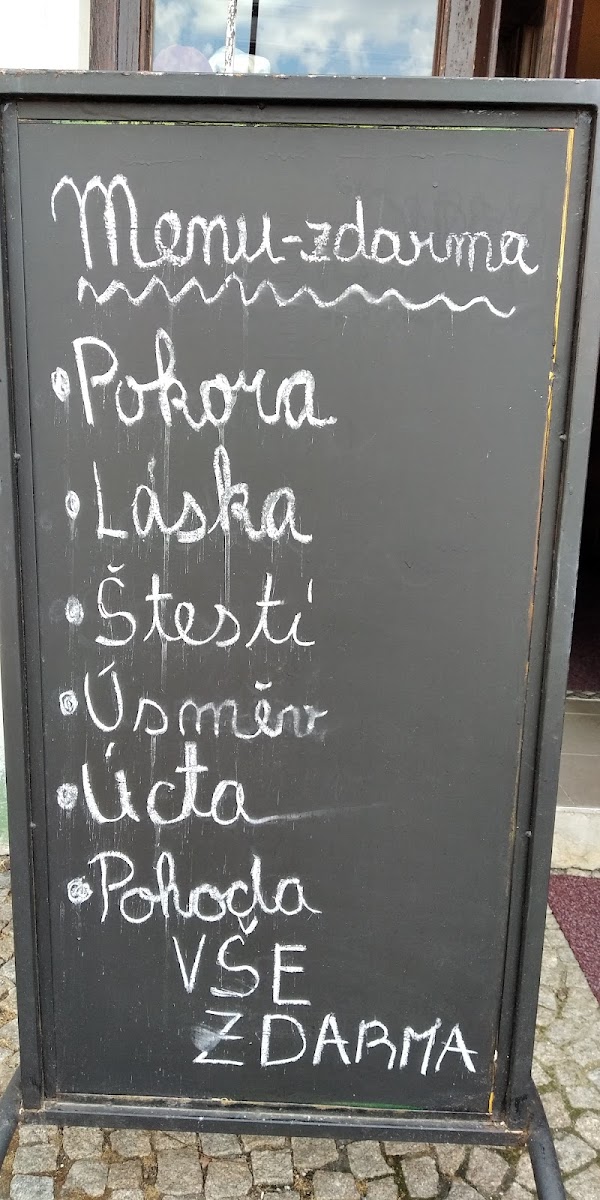 Menu-zdarma
• Pokora
• Láska
• Štestí
• Úsměv
• Úcta
• Pohoda
VŠE
ZDARMA